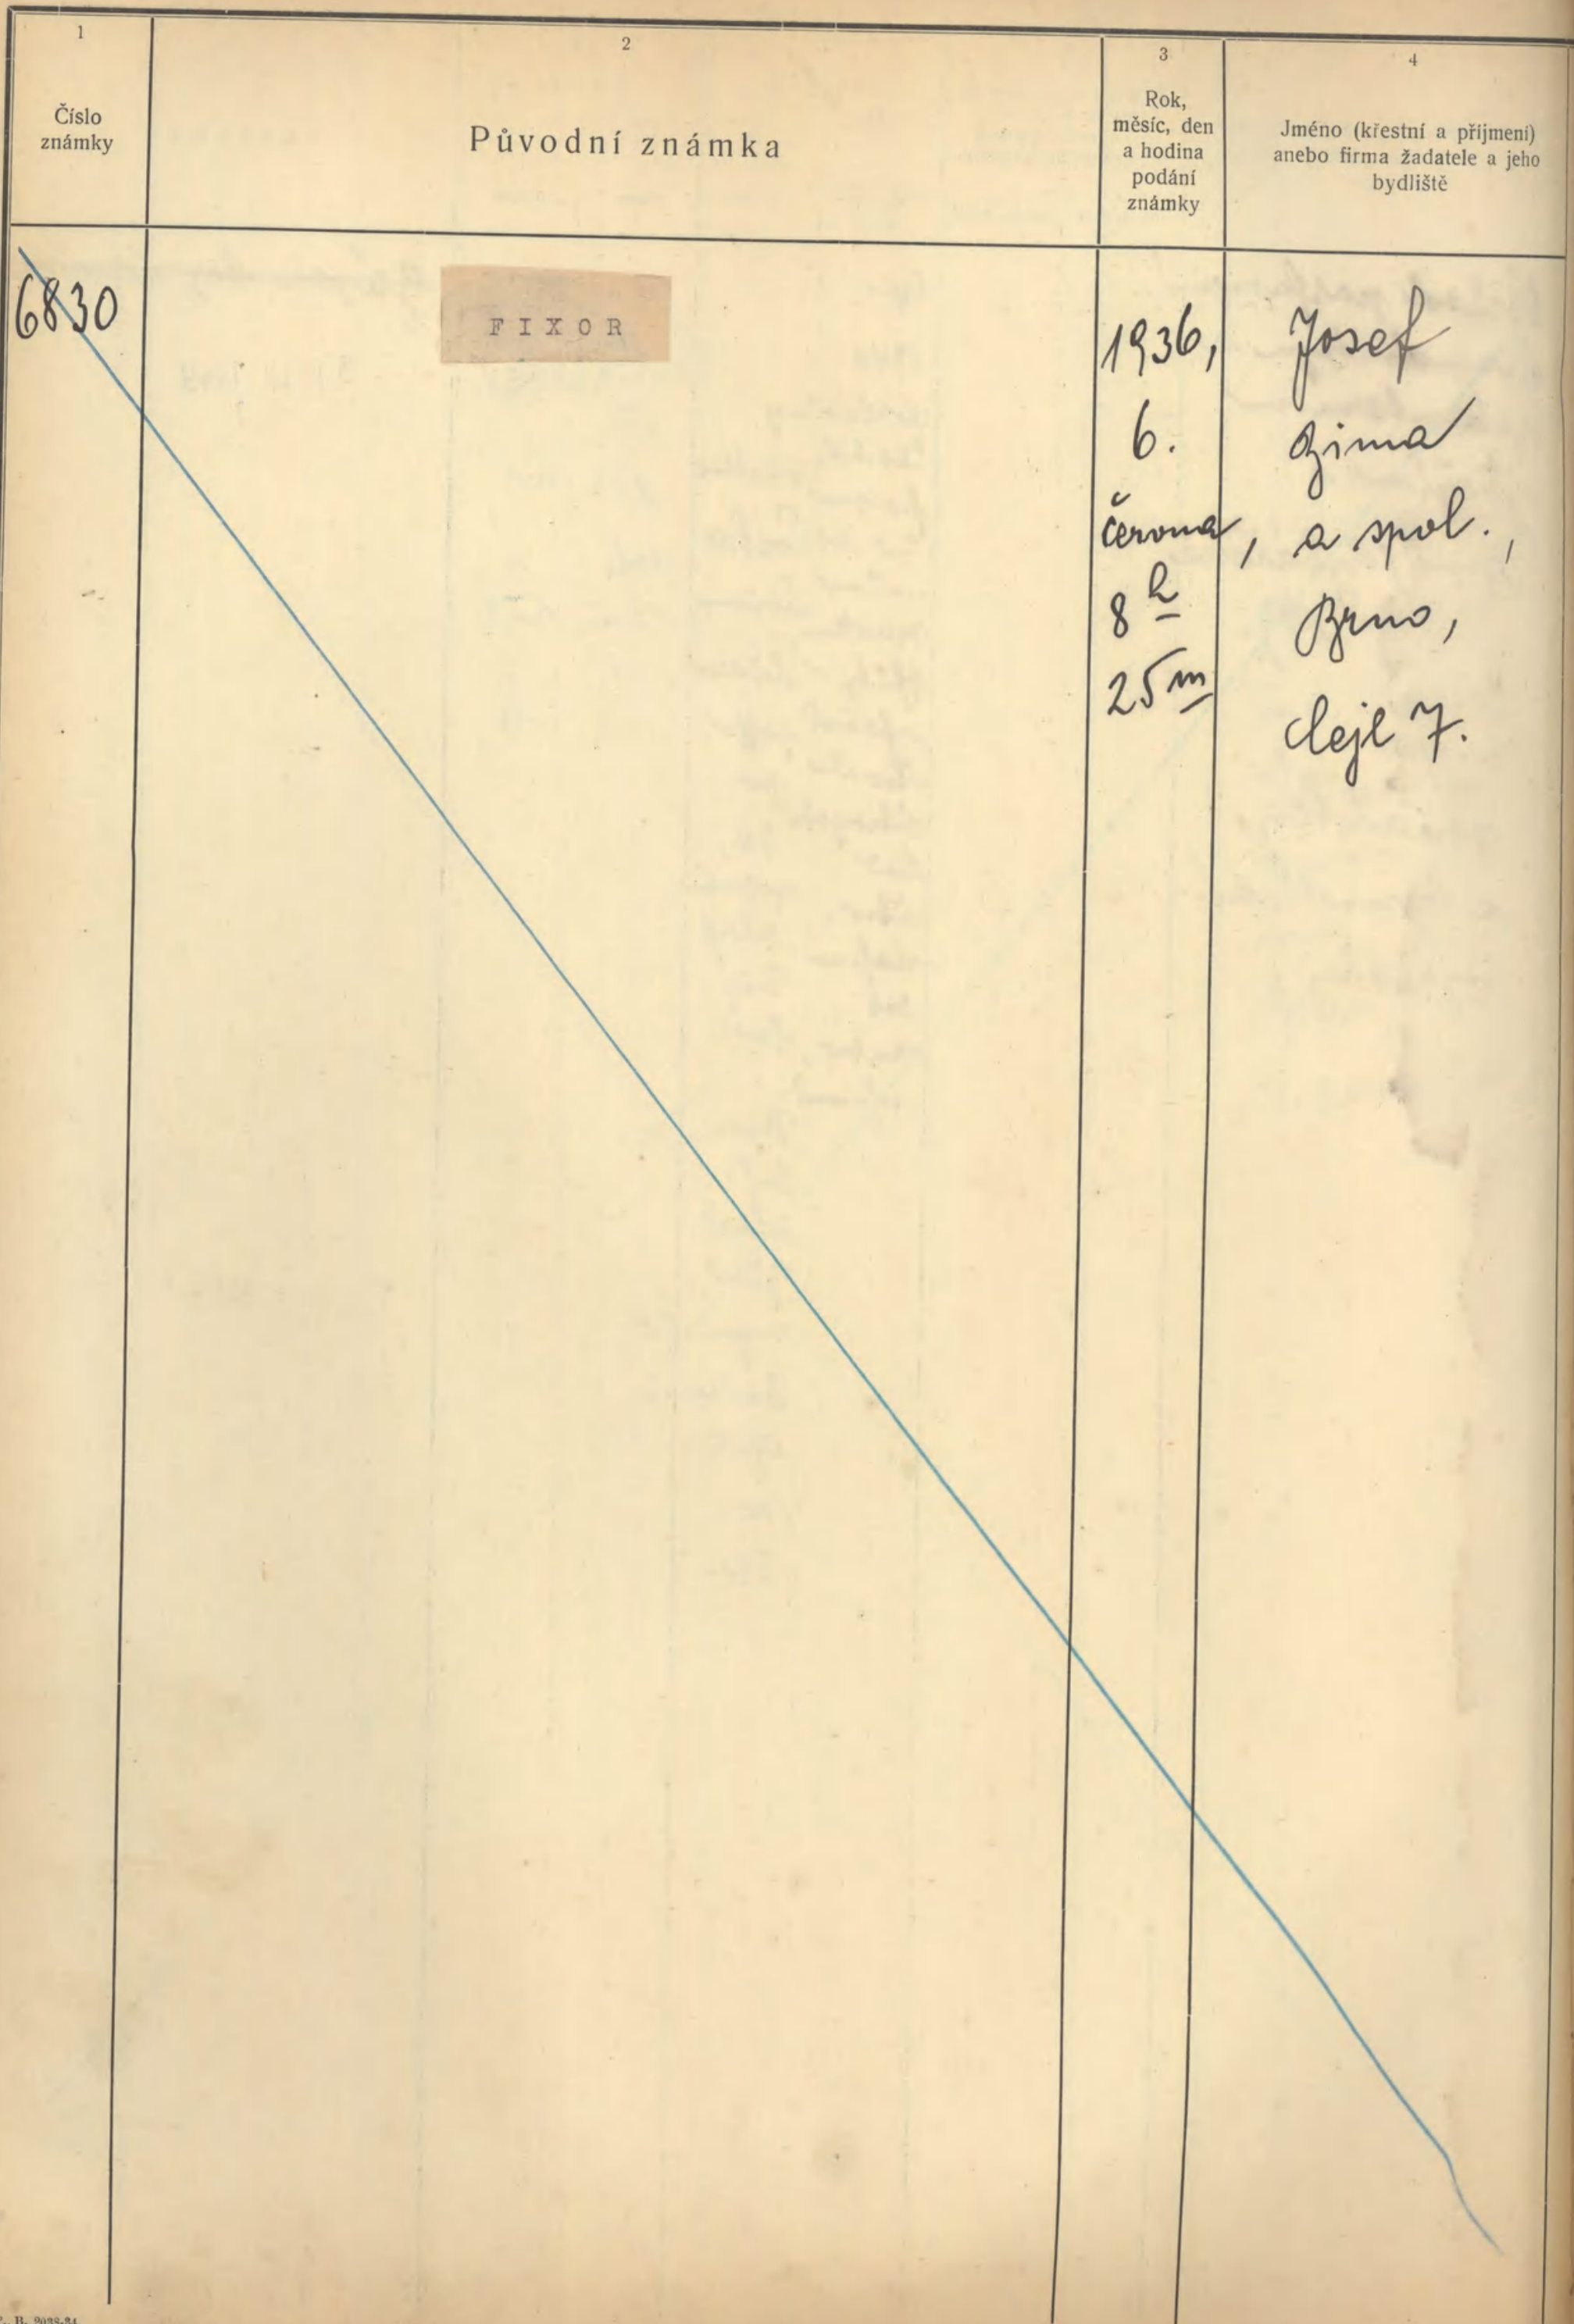 1
Číslo
známky
2
Původní známka
3
Rok,
měsíc, den
a hodina
podání
známky
4
Jméno (křestní a příjmení)
anebo firma žadatele a jeho
bydliště
6830
FIXOR
1936,
6.
června,
8 h
25 m
Josef
Zima
a spol.,
Brno,
Cejl 7.